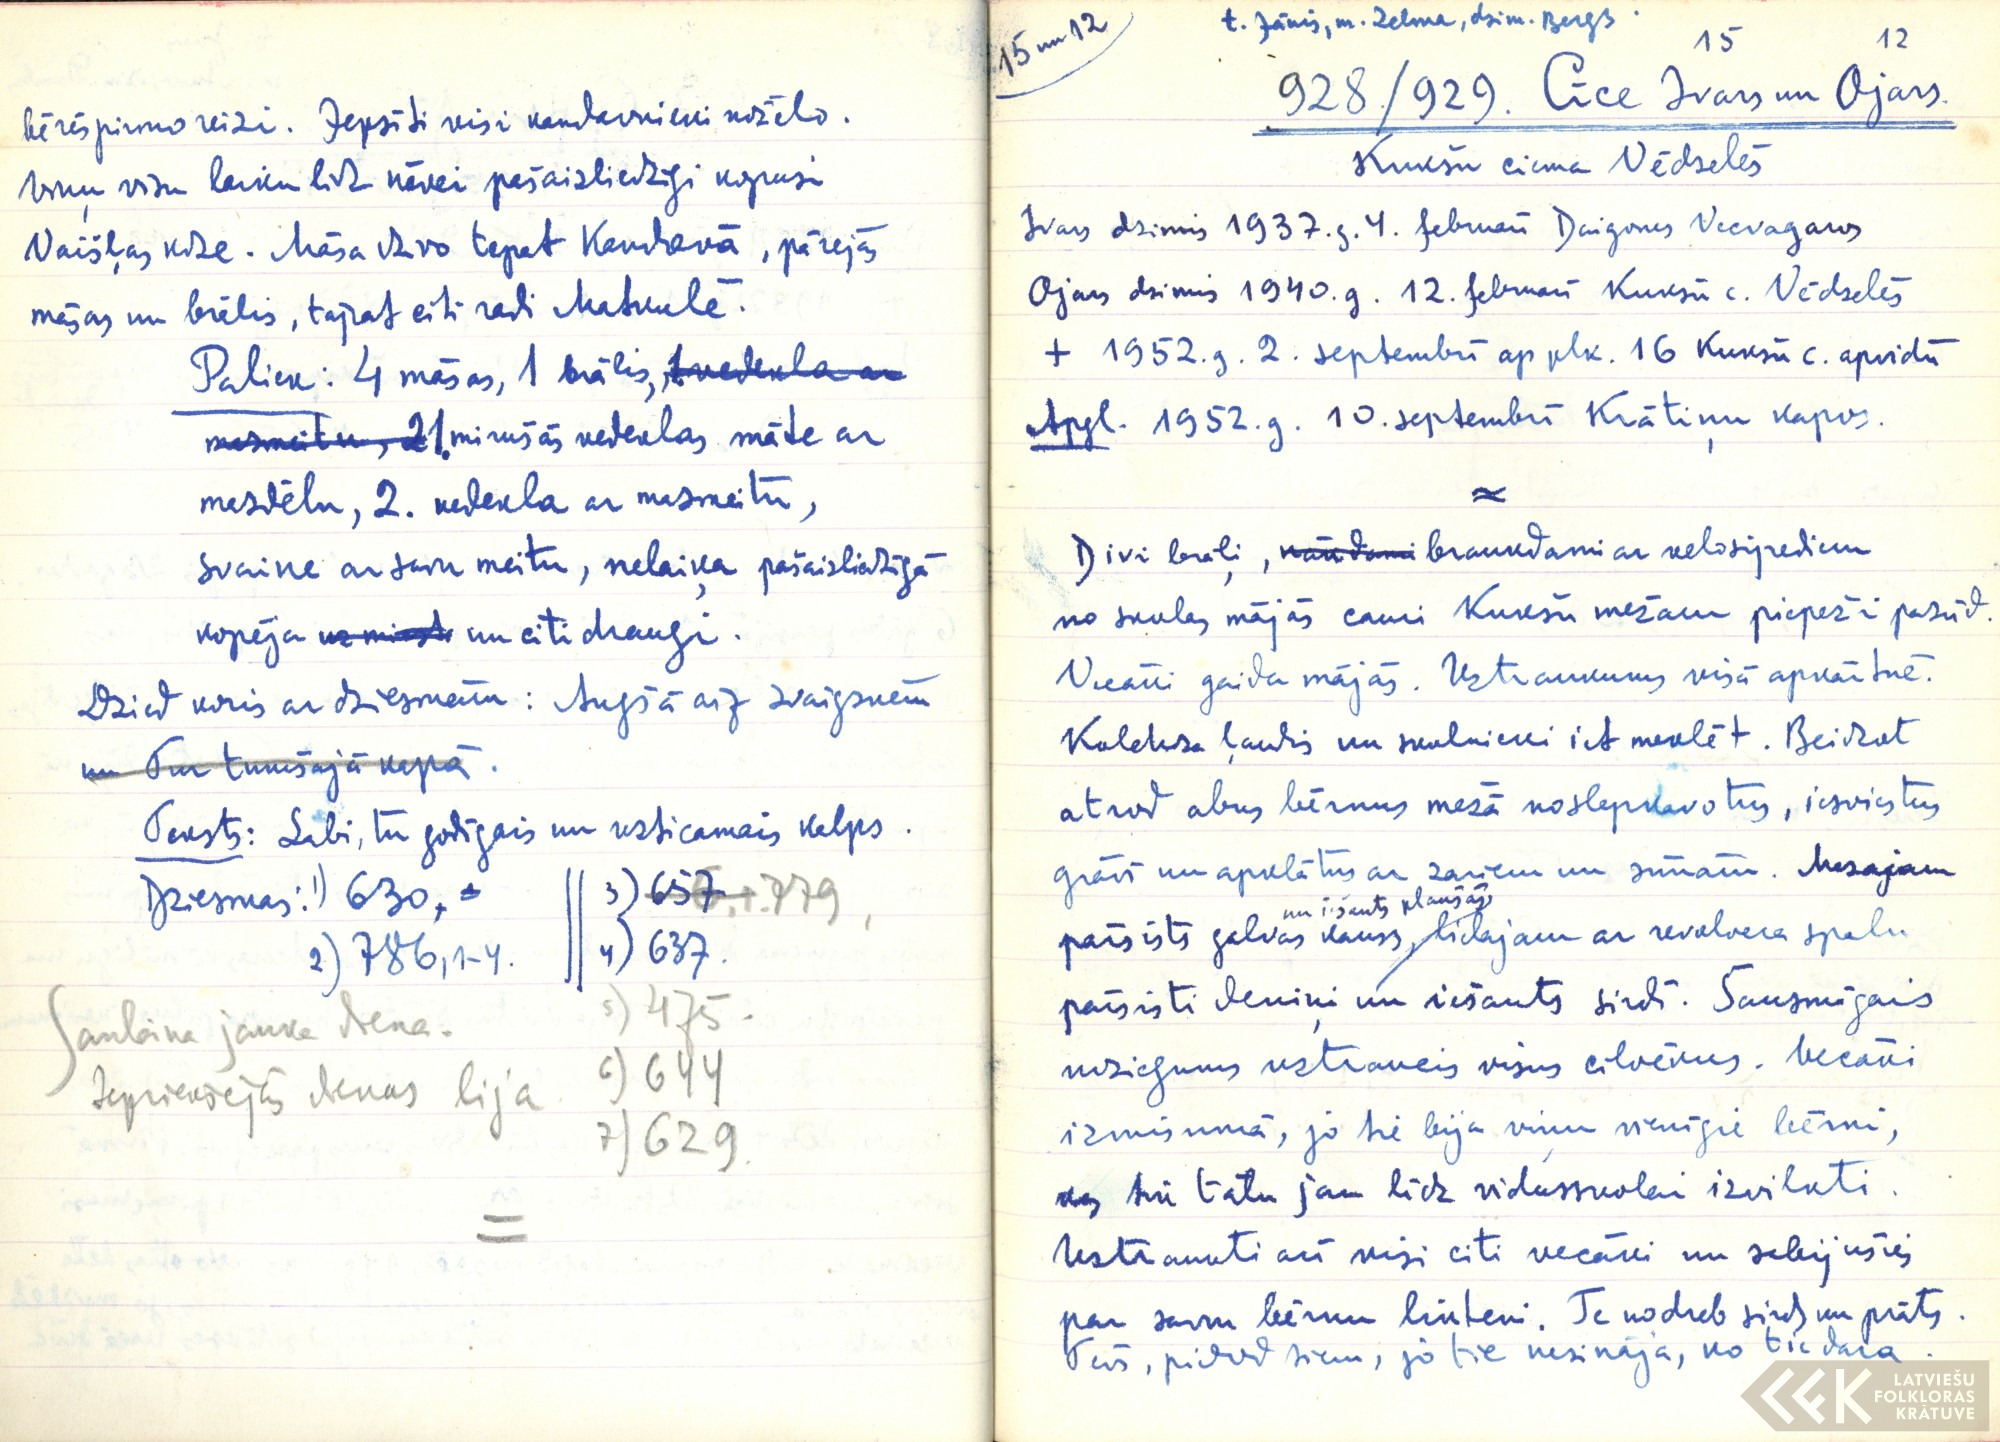 bērēs pirmo reizi. Iepsīti visi kandavnieki nožēlo.
Viņu visu laiku līdz nāvei pašaizliedzīgi kopusi
Vaišļas kdze. Māsa dzīvo tepat Kandavā, pārejās
māsas un brālis, tāpat citi radi Matkulē.
Paliek: 4 māsas, 1 brālis, 1 vedekla ar
mazmeitu, 2 1. mirušās vedeklas māte ar
mazdēlu, 2. vedekla ar mazmeitu,
svaine ar savu meitu, nelaiķa pašaizliedzīgā
kopēja un citi draugi.
Dzied koris ar dziesmām: Augšā aiz zvaigznēm
un Tur tumšajā kapā.
Teksts: Labi, tu godīgais un uzticamais kalps.
Dziesmas: 1) 630,
2) 786, 1-4.
3) 657 779,
4) 637.
5) 475.
6) 644
7) 629.
Saulaina jauka diena.
Iepriekšējās dienas lija.
15 un 12
t. Jānis, m. Zelma, dzim. Bergs.
15 12
928./929. Cīce Ivars un Ojars.
Kukšu ciema Vēdzelēs
Ivars dzimis 1937.g. 4. februarī Daigones Vecvagaros
Ojars dzimis 1940.g. 12. februarī Kukšu c. Vēdzelēs
+ 1952.g. 2. septembrī ap plk. 16 Kukšu c. apvidū
Apgl. 1952.g. 10. septembrī Krātiņu kapos.
≈
Divi brāļi, braukdami ar velosipediem
no skolas mājās cauri Kukšu mežam piepeži pazūd.
Vecāki gaida mājās. Uztraukums visā apkārtnē.
Kolchoza ļaudis un skolnieki iet meklēt. Beidzot
atrod abus bērnus mežā noslepkavotus, iesviestus
grāvī un apklātus ar zariem un sūnām. Mazajam
pārsists galvas kauss, un iešauts plaušās, lielajam ar revolvera spalu
pārsisti deniņi un iešauts sirdī. Šausmīgais
noziegums uztraucis visus cilvēkus. Vecāki
izmisumā, jo tie bija viņu vienīgie bērni,
kas tik tālu jau līdz vidusskolai izvilkti.
Uztraukti arī visi citi vecāki un sabijušies
par savu bērnu likteni. Te nodreb sirds un prāts.
Tēvs, piedod tiem, jo tie nezināja, ko tie dara.
LATVIEŠU
FOLKLORAS
KRĀTUVE